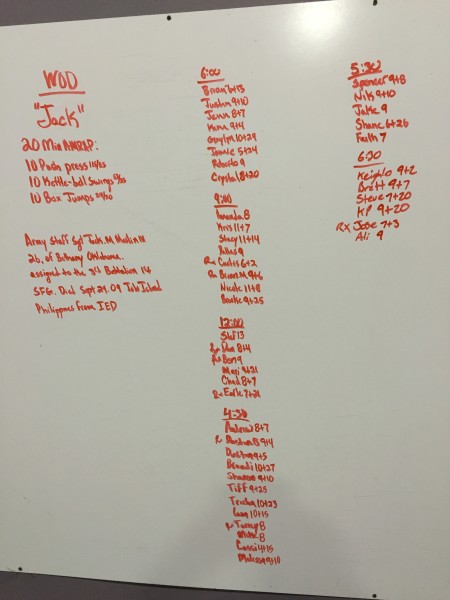 WOD
"Jack"
20 Min AMRAP:
10 Push press 115/85
10 Kettle-ball Swings
10 Box Jumps 24/20
Army Staff Sgt Jack M. Martin III
26, of Bethany Oklahoma.
assigned to the 3rd Battalion 1st
SFG. Died Sept 29. 09 Jolo Island
Philippines from IED
6:00
Brian 6+13
9+10
Jenn 8+7
9+4
10+29
5+24
9
Crystal 8+20
9:00
Amanda 8
Kris 11+7
Stacy 11+14
9
Rx Curtis 6+2
Rx 9+6
Nicole 11+8
9+25
12:00
13
Rx Dan 8+4
Rx Ben 9
9+21
Chad 8+7
Rx 7+21
4:30
Andrew 8+7
Rx 9+4
Dustin 9+5
10+27
Shannon 9+10
Tiff 9+25
Tricha 10+23
10+15
Rx 8
Mike 8
Cassi 4+15
Melissa 9+10
5:30
Spencer 9+8
Nik 9+10
Jake 9
Shane 6+26
Faith 7
6:30
9+2
Brett 9+7
Steve 7+20
KP 9+20
Rx Jose 7+3
Ali 9